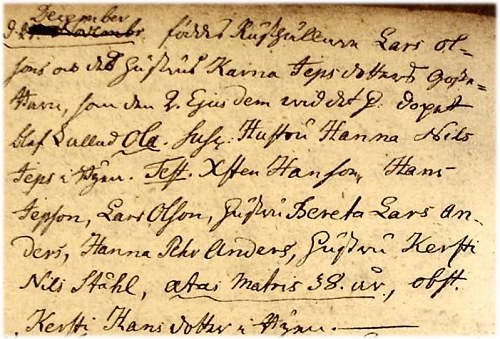 December
föddes Lars Ol-
sons och des hustrus Karna Jepsdotters gosse-
barn, som den 2. Ejusdem wid det H. dopet
blef kallad Ola. Susc. Hustru Hanna Nils
Jeps i Test. Xsten Hanson, Hans
Jepson, Lars Olson, hustru Bereta Lars An-
ders, Hanna Pehr Anders, hustru Kersti
Nils Ståhl, ætas Matris 38. år, obst.
Kersti Hans dotter i